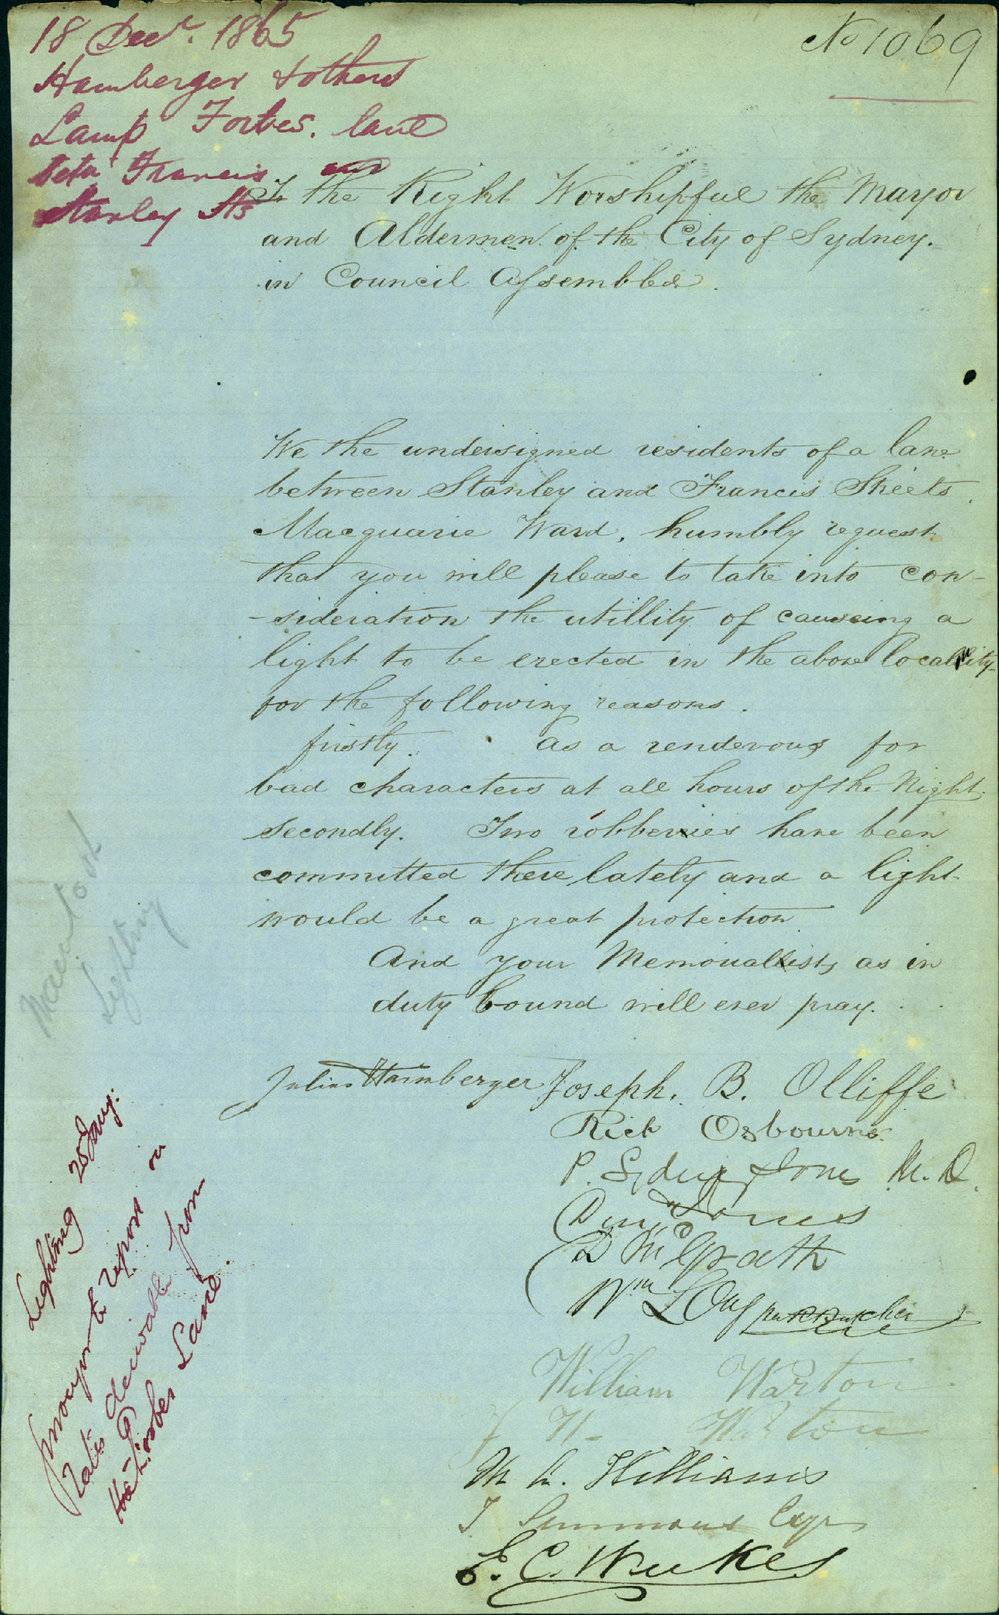 18 Decr. 1865
Hamberger & others
Lamp Forbes. lane
betn Francis and
Stanley Sts
No 1069
To the Right Worshipful the Mayor
and Aldermen of the City of Sydney.
in Council Assembled.
We the undersigned residents of a lane
between Stanley and Francis Streets.
Macquarie Ward, humbly request
that you will please to take into con-
-sideration the utillity of causeing a
light to be erected in the above locality
for the following reasons.
firstly. as a rendevous for
bad characters at all hours of the Night.
Secondly. Two robberies have been
committed there lately and a light
would be a great protection
And your Memorialists, as in
duty bound will ever pray.
Julius Hamberger Joseph. B. Olliffe
Rich Osbourne
P. Sydney Jones M.D.
Jones
D McGrath
Wm
William Warton
W Warton
M A. Williams
T Simmons
E. C. Weekes
Lighting
Lighting 25 Jany.
Surveyor to report on
Rates derivable from
the Forbes Lane.